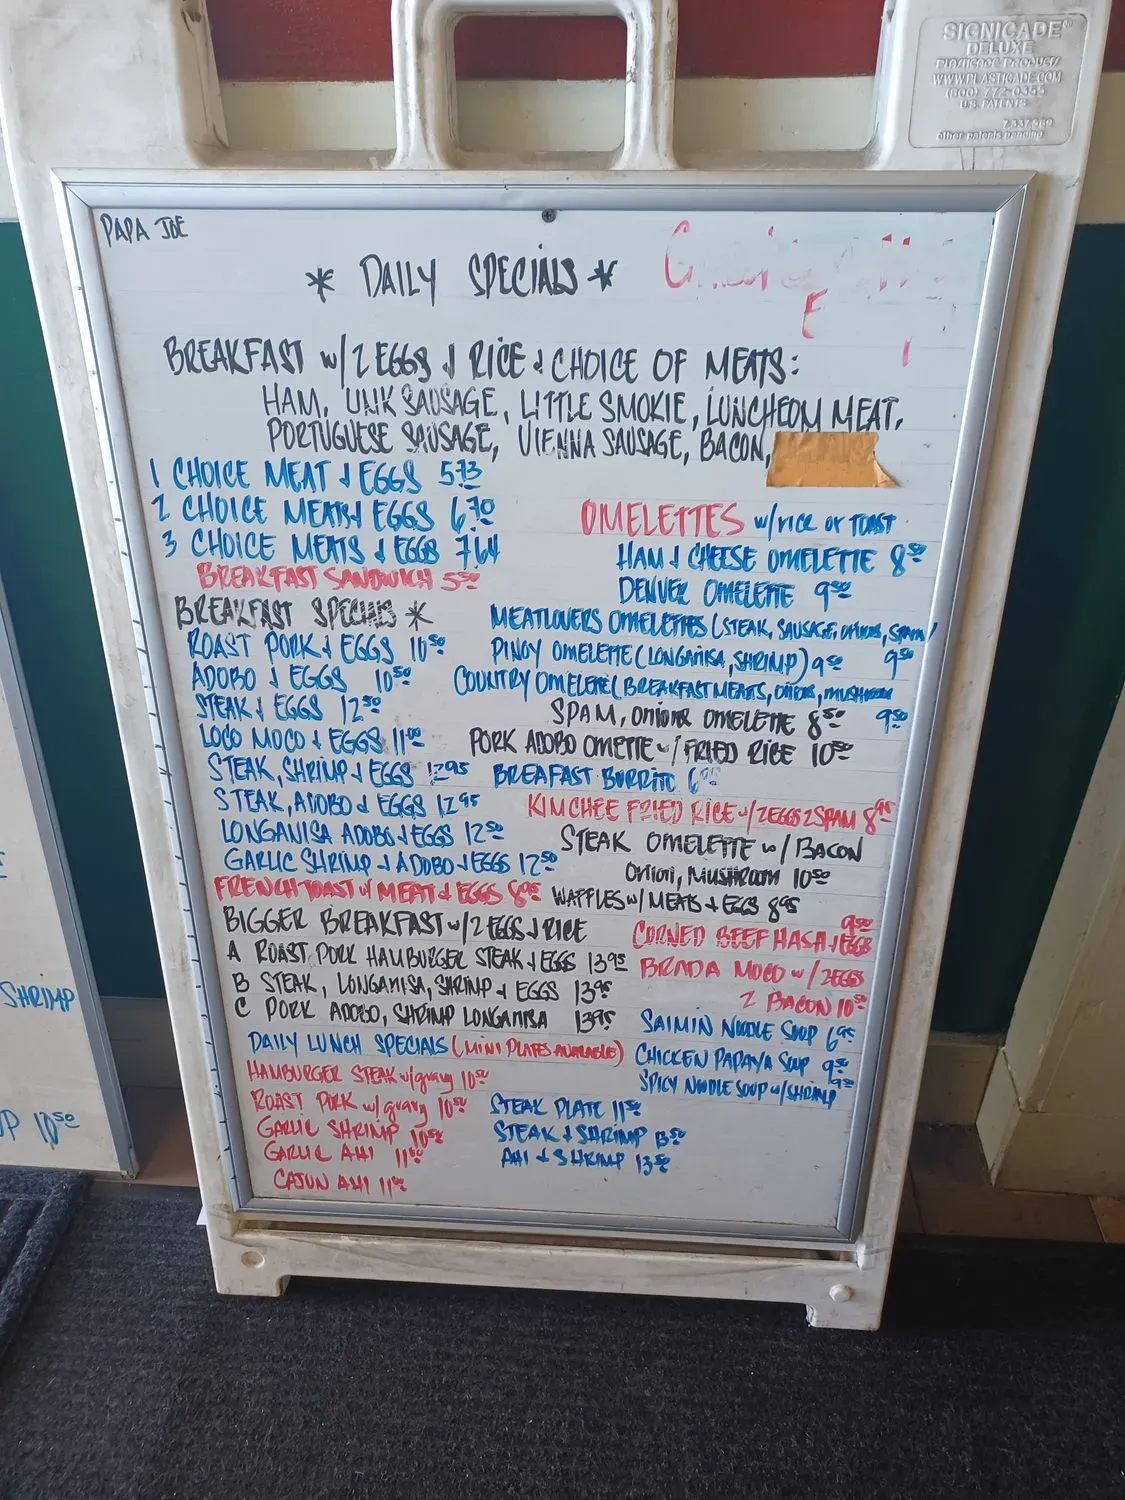 SIGNICADE®
DELUXE
PLASTICADE PRODUCTS
WWW.PLASTICADE.COM
(800) 772-0355
U.S. PATENTS
other patents pending
PAPA JOE
* DAILY SPECIALS *
BREAKFAST w/2 EGGS & RICE & CHOICE OF MEATS:
HAM, LINK SAUSAGE, LITTLE SMOKIE, LUNCHEOM MEAT,
PORTUGUESE SAUSAGE, VIENNA SAUSAGE, BACON,
1 CHOICE MEAT & EGGS 5.73
2 CHOICE MEATS & EGGS 6.70
3 CHOICE MEATS & EGGS 7.64
BREAKFAST SANDWICH 5.50
BREAKFAST SPECIALS *
ROAST PORK & EGGS 10.50
ADOBO & EGGS 10.50
STEAK & EGGS 12.50
LOCO MOCO & EGGS 11.00
STEAK, SHRIMP & EGGS 12.95
STEAK, ADOBO & EGGS 12.95
LONGANISA ADOBO & EGGS 12.50
GARLIC SHRIMP & ADOBO & EGGS 12.50
FRENCH TOAST w/ MEAT & EGGS 8.95
BIGGER BREAKFAST w/2 EGGS & RICE
A ROAST PORK HAMBURGER STEAK & EGGS 13.95
B STEAK, LONGANISA, SHRIMP & EGGS 13.95
C PORK ADOBO, SHRIMP LONGANISA 13.95
DAILY LUNCH SPECIALS (MINI PLATES AVAILABLE)
HAMBURGER STEAK w/gravy 10.50
ROAST PORK w/ gravy 10.50
GARLIC SHRIMP 10.50
GARLIC AHI 11.00
CAJUN AHI 11.00
STEAK PLATE 11.50
STEAK & SHRIMP 13.50
AHI & SHRIMP 13.50
OMELETTES w/rice or TOAST
HAM & CHEESE OMELETTE 8.50
DENVER OMELETTE 9.50
MEATLOVERS OMELETTES (STEAK, SAUSAGE, onions, SPAM)
9.50
PINOY OMELETTE (LONGANISA, SHRIMP) 9.50
COUNTRY OMELETTE (BREAKFAST MEATS, onions, mushroom
9.50
SPAM, Onions OMELETTE 8.50
PORK ADOBO OMETTE w/ FRIED RICE 10.50
BREAFAST BURRITO
KIMCHEE FRIED RICE w/2EGGS 2SPAM 8.95
STEAK OMELETTE w/ BACON
Onion, MUSHROOM 10.50
WAFFLES w/ MEATS & EGGS 8.95
9.50
CORNED BEEF HASH & EGGS
BRADA MOCO w/ 2EGGS
2 BACON 10.50
SAIMIN NOODLE SOUP 6.95
CHICKEN PAPAYA SOUP 9.50
SPICY NOODLE SOUP w/SHRIMP 9.50
SHRIMP
10.50